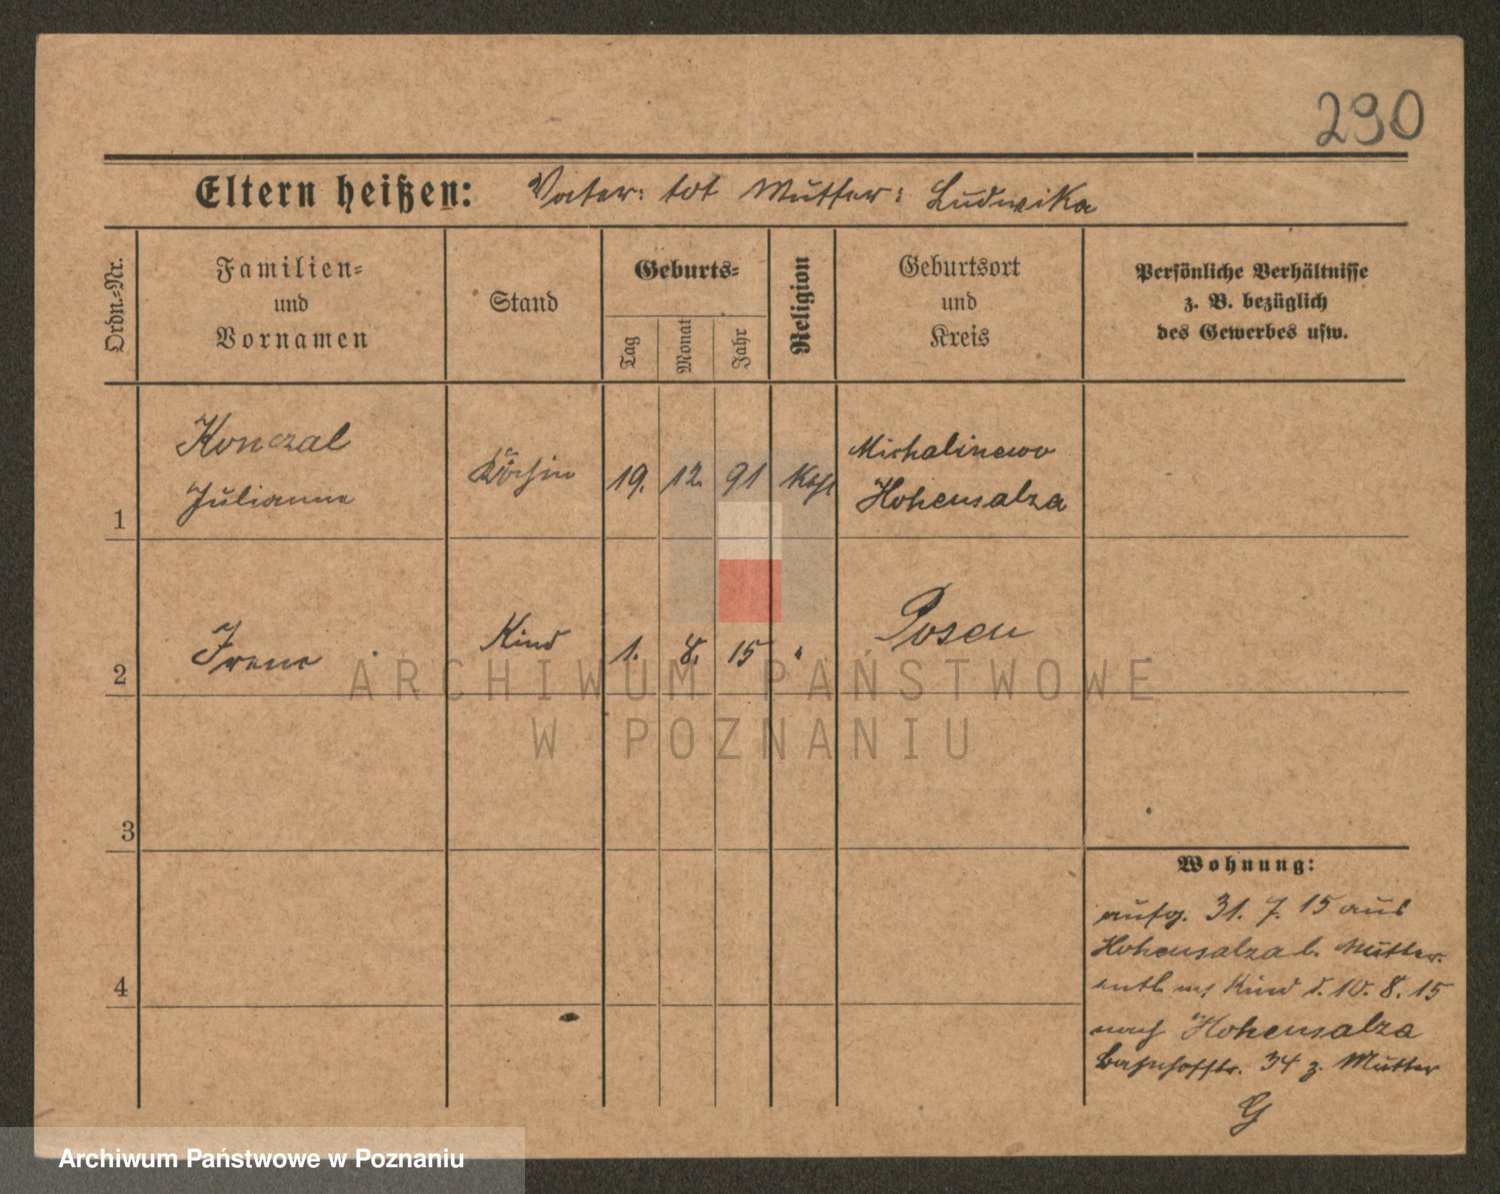 290
Eltern heißen: Vater: tot Mutter: Ludwika
Ordn.-Nr.
Familien-
und
Vornamen
Stand
Geburts-
Tag
Monat
Jahr
Religion
Geburtsort
und
Kreis
Persönliche Verhältnisse
z. B. bezüglich
des Gewerbes usw.
1
Konczal
Julianna
Köchin
19. 12. 91
Kath
Michalinowo
Hohensalza
2
Irena
Kind
1. 8. 15
"
Posen
3
4
Wohnung:
aufg. 31. 7. 15 aus
Hohensalza b. Mutter.
entl. mit Kind d. 10. 8. 15
nach Hohensalza
Bahnhofstr. 34 z. Mutter
G
ARCHIWUM PAŃSTWOWE
W POZNANIU
Archiwum Państwowe w Poznaniu